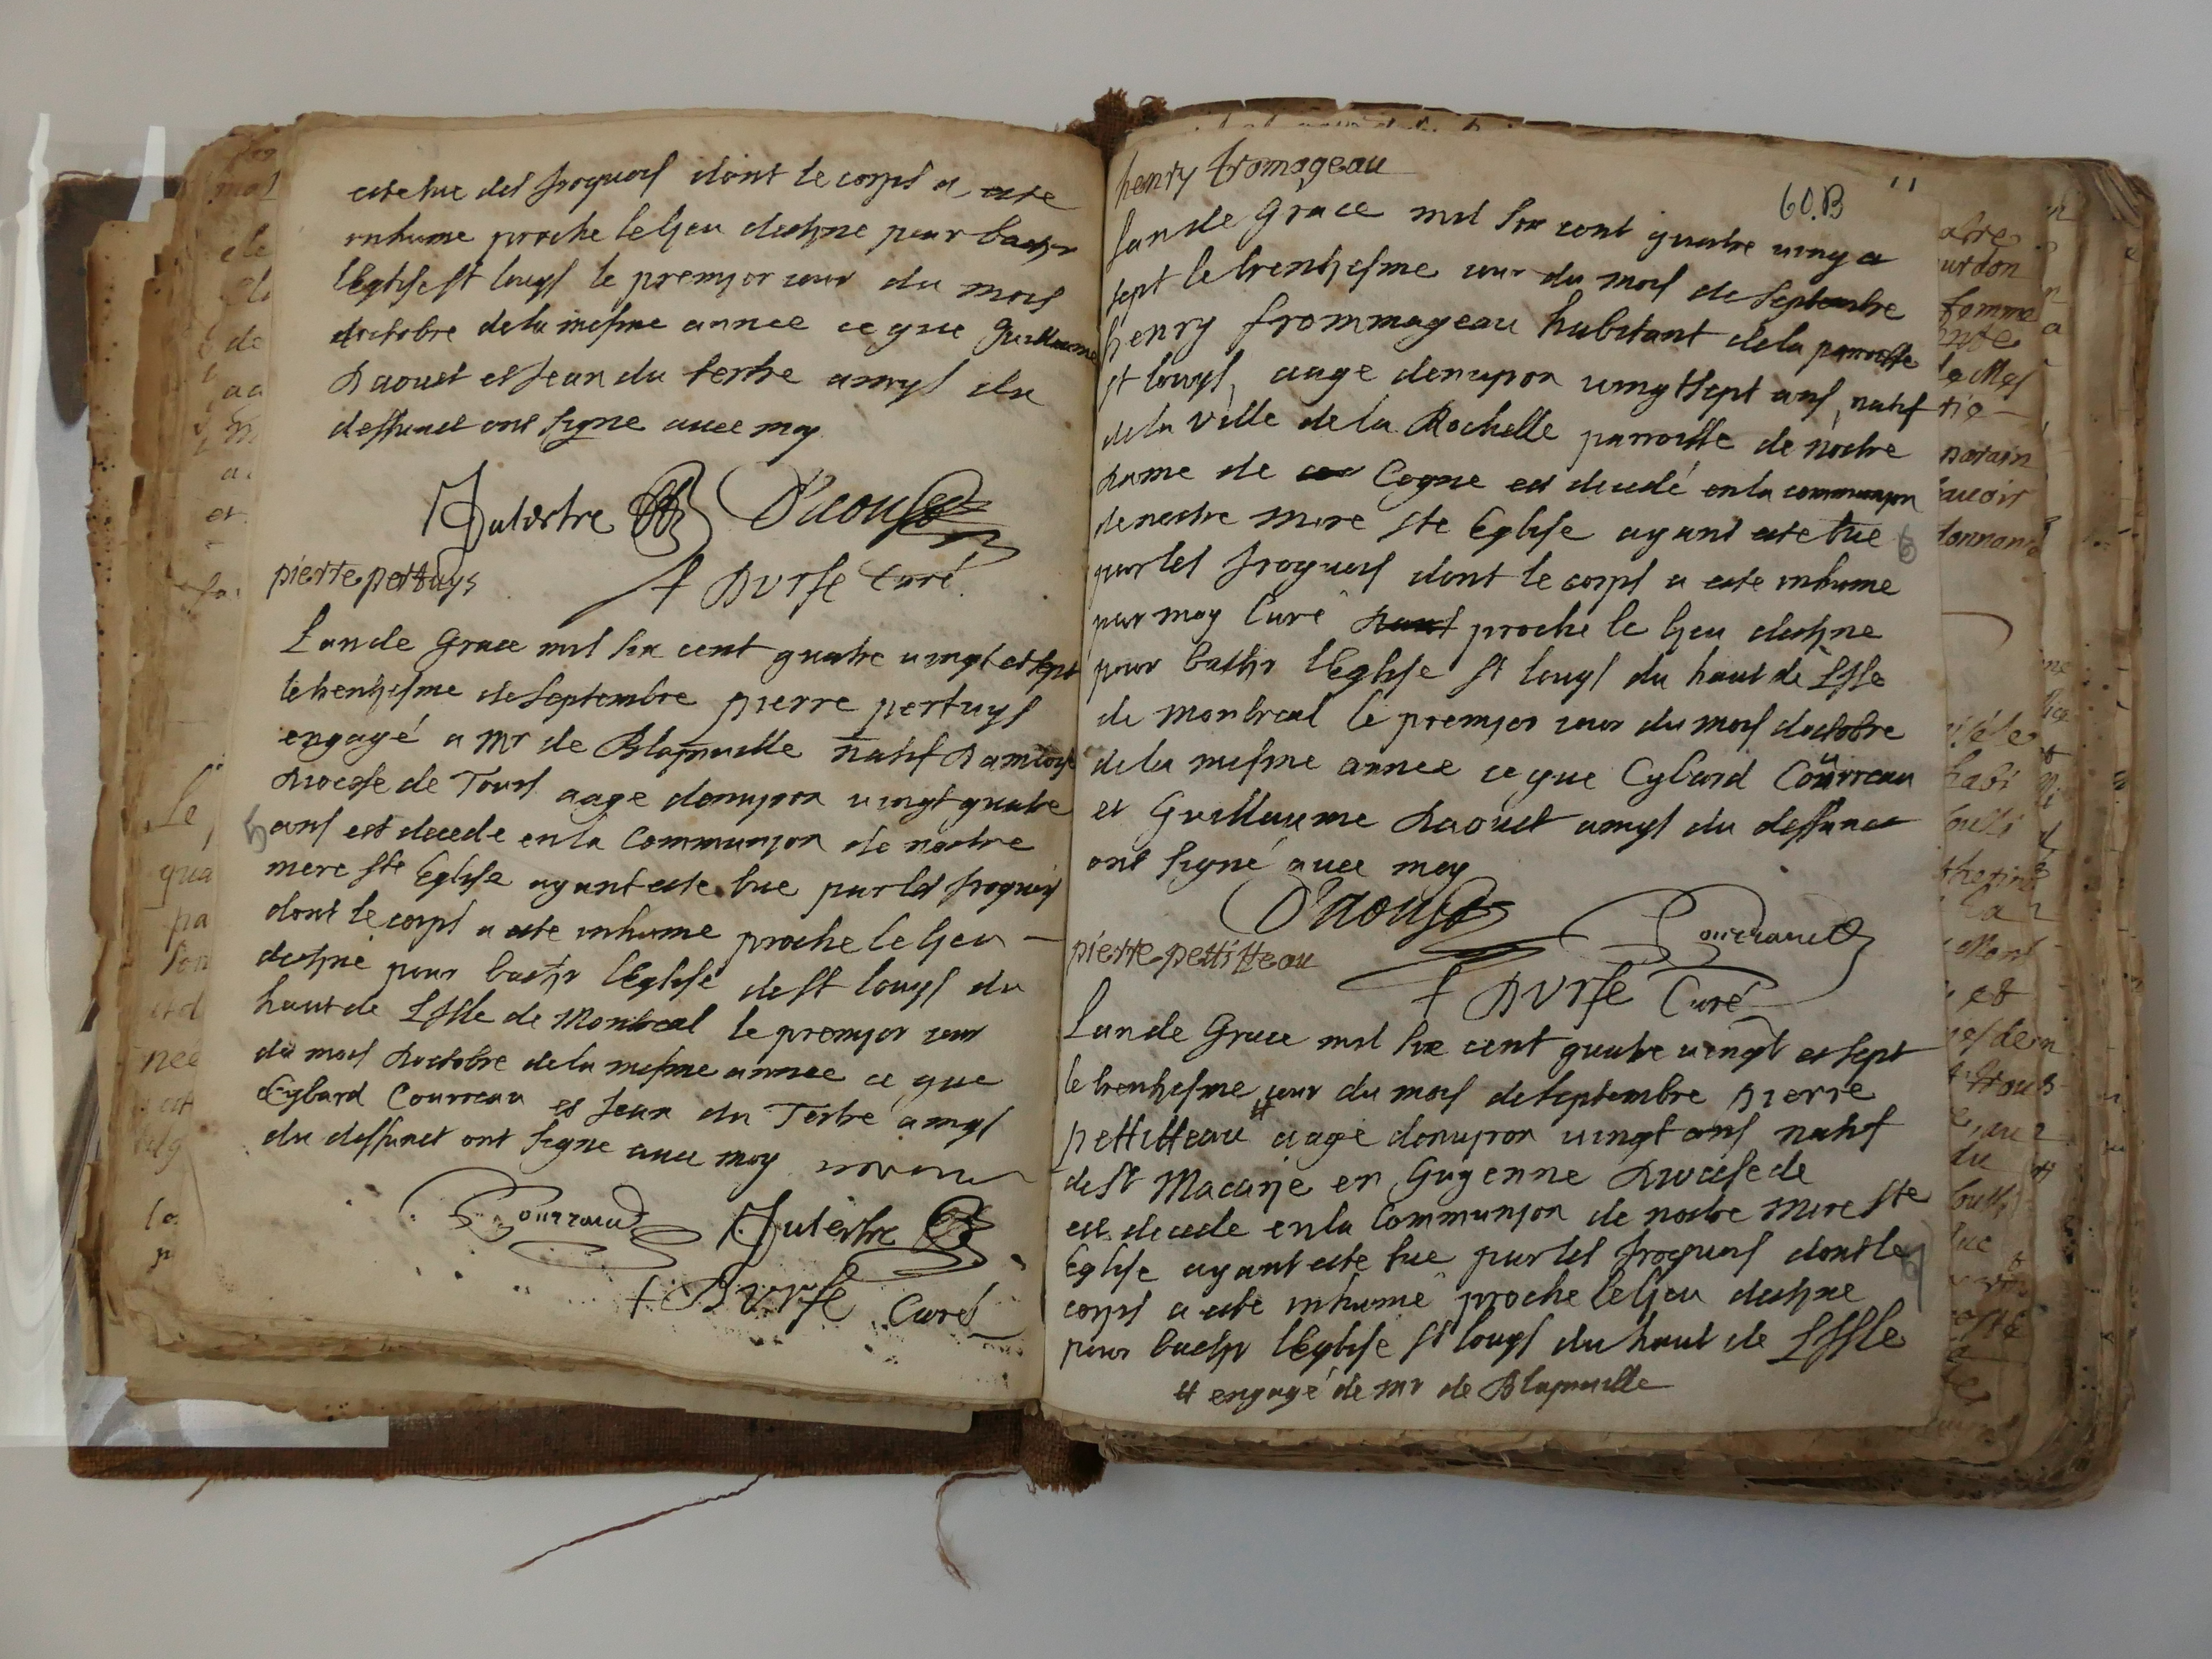 este tue des Iroquois dont le corps a este
inhume proche le lieu destine pour bastir
lEglise st louys le premjer iour du mois
doctobre de la mesme annee ce que Guillaume
Daoust et Jean du tertre amys du
deffunct ont signe avec moy
Dutertre D'aoust
+ DVrfé Curé
pierre pertuys
Lan de Grace mil six cent quatre vingt et sept
le trentiesme de septembre pierre pertuys
engagé a Mr de Blainville natif Damboise
diocese de Tours aage denviron vingt quatre
ans est decede en la Communion de nostre
mere ste Eglise ayant este tue par les Iroquois
dont le corps a este inhume proche le lieu
destiné pour bastir lEglise de st louys du
haut de Lisle de Montreal le premjer iour
du mois doctobre de la mesme annee ce que
Cybard Courreau et Jean du Tertre amys
du deffunct ont signe avec moy
Courraud Dutertre
+ DVrfé Curé
henry fromageau
60.B
11
Lan de Grace mil six cent quatre ving et
sept le trentiesme iour du mois de septembre
henry frommageau habitant de la parroisse
st louys, aage denviron vingt sept ans, natif
de la ville de la Rochelle parroisse de nostre
dame de Cogne est decedé en la communion
de nostre mere ste Eglise ayant este tue
par les Iroquois dont le corps a este inhume
par moy Curé proche le lieu destine
pour bastir lEglise st louys du haut de Lisle
de Montreal le premjer iour du mois doctobre
de la mesme annee ce que Cybard Courreau
et Guillaume Daoust amys du deffunct
ont signé avec moy
D'aoust
Courraud
+ DVrfé Curé
pierre pettitteau
Lan de Grace mil six cent quatre vingt et sept
le trentiesme iour du mois de septembre pierre
pettitteau # aage denviron vingt ans natif
de st Macarje en Guyenne diocese de
est decede en la Communion de nostre mere ste
Eglise ayant este tue par les Iroquois dont le
corps a este inhumé proche le lieu destine
pour bastir lEglise st louys du haut de Lisle
# engagé de Mr de Blainville